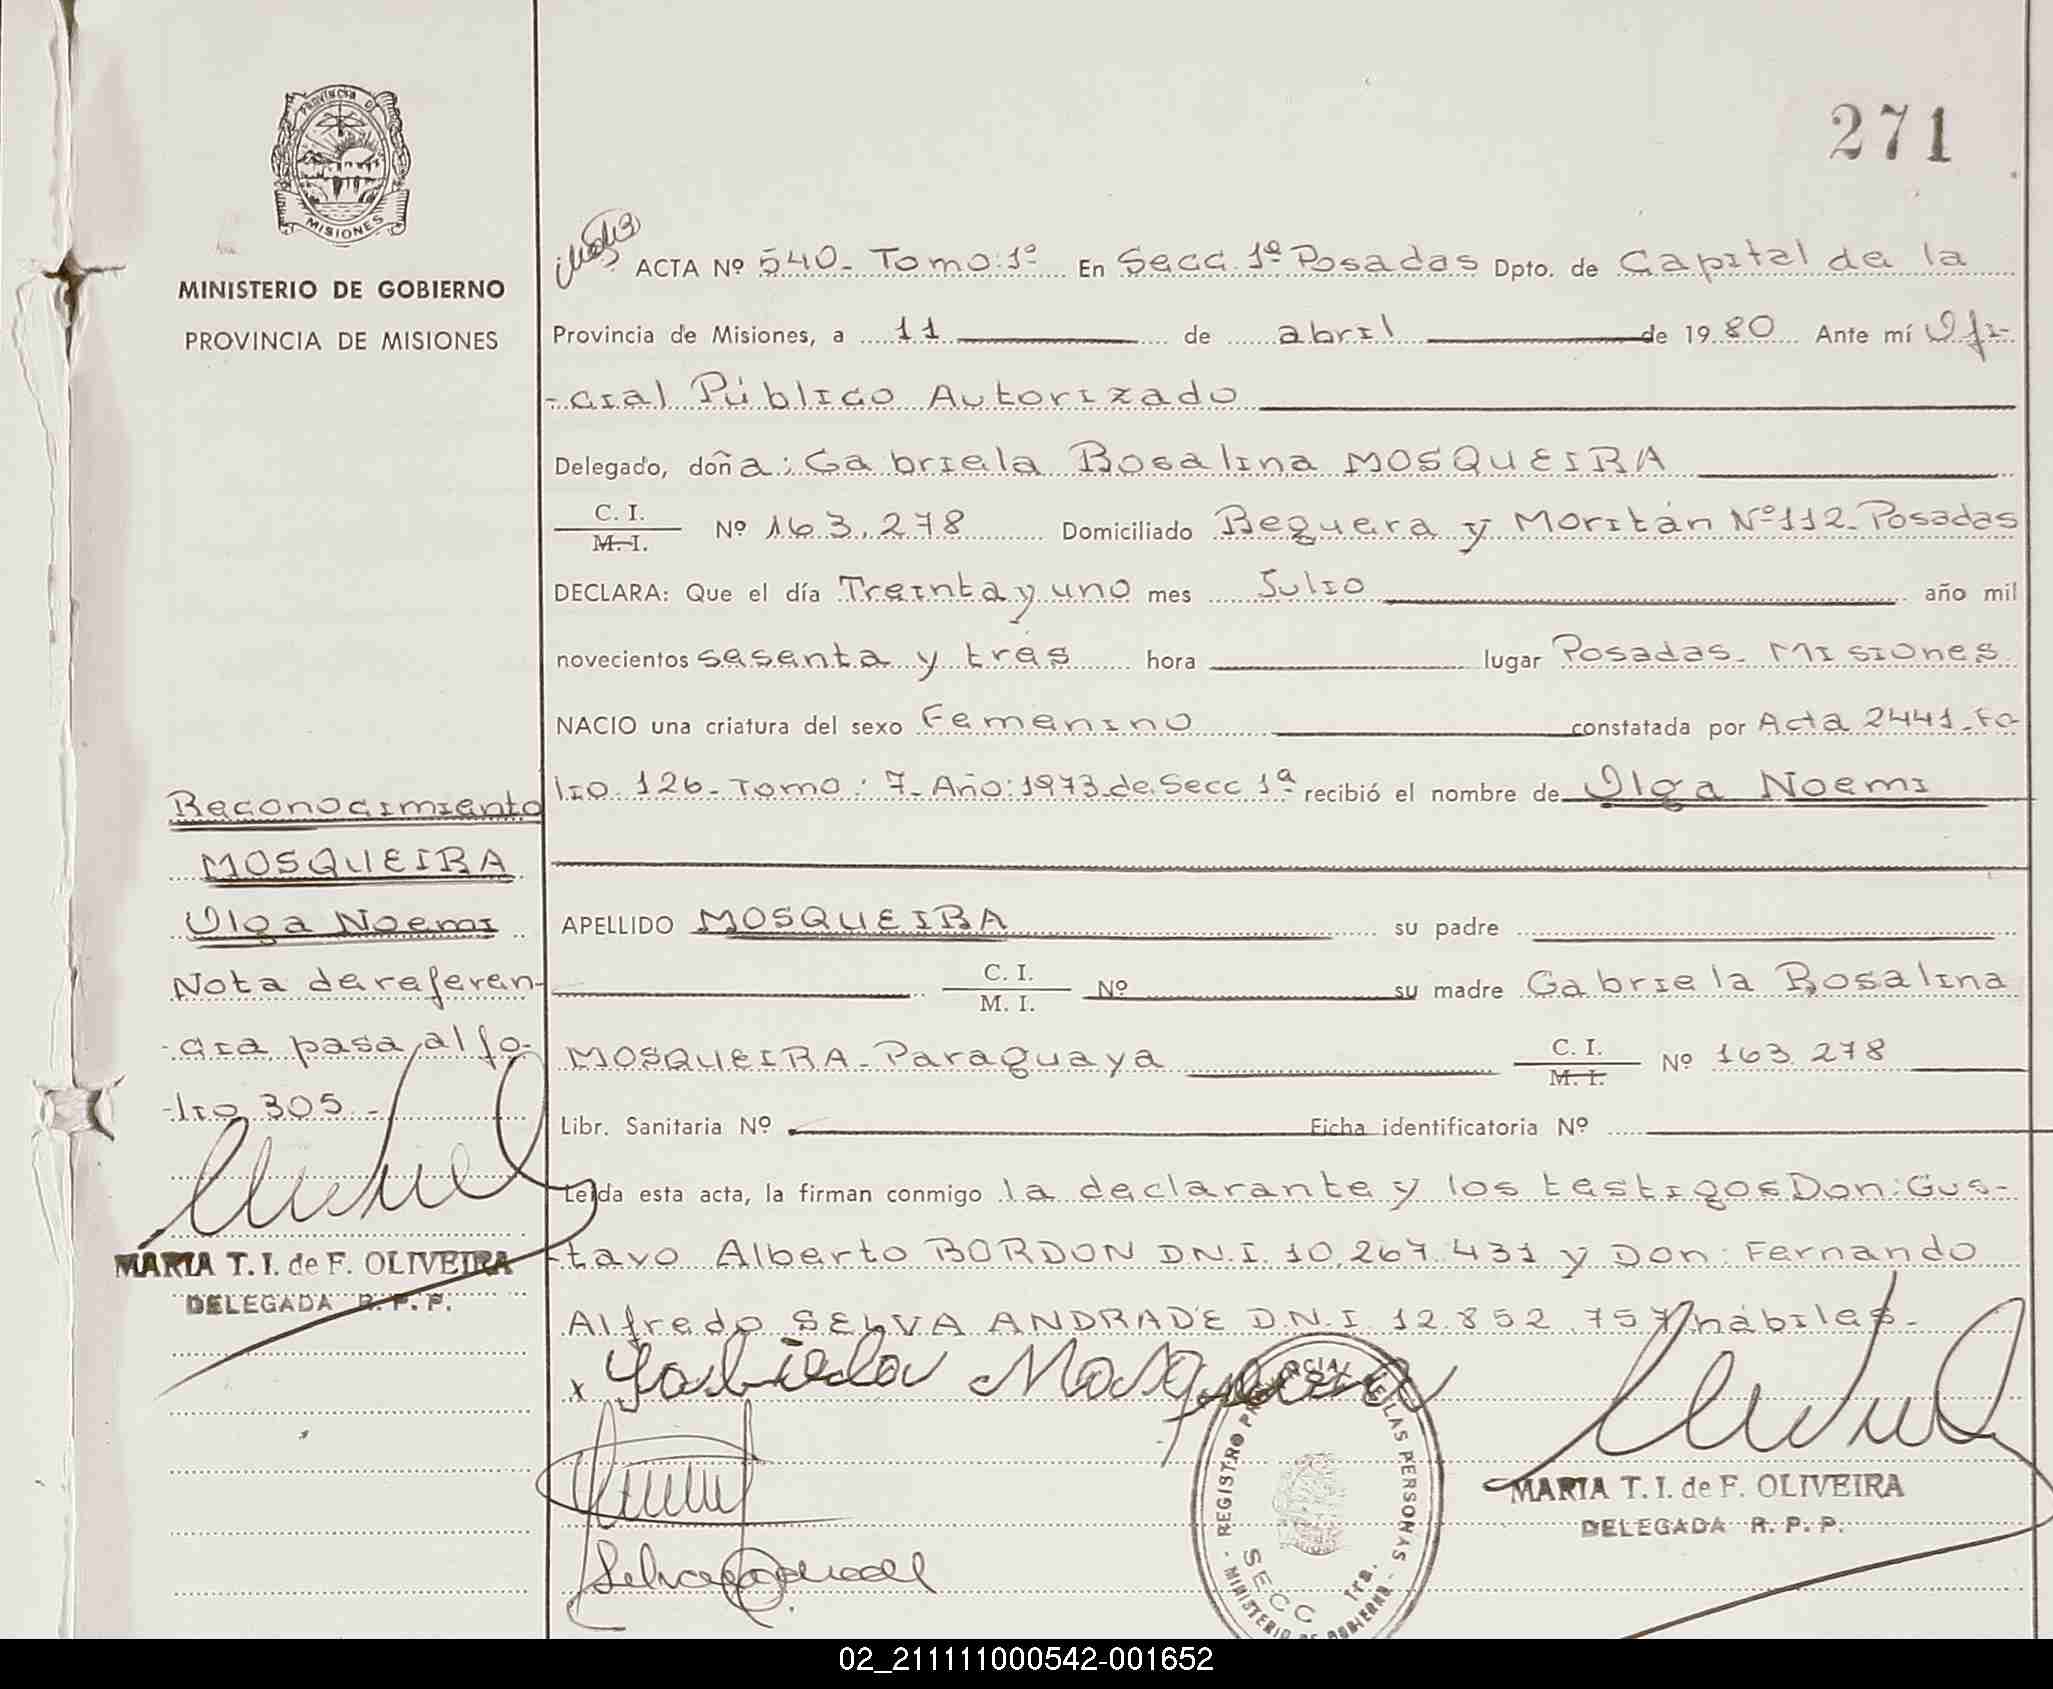 271
PROVINCIA D
MISIONES
MINISTERIO DE GOBIERNO
PROVINCIA DE MISIONES
ACTA Nº 540- Tomo: 1º En Secc. 1ª Posadas Dpto. de Capital de la
Provincia de Misiones, a 11 de abril de 1980 Ante mí Ofi-
-cial Público Autorizado
Delegado, doña: Gabriela Rosalina MOSQUEIRA
C. I.
M. I. Nº 163.278 Domiciliado Beguera y Moritán Nº 112- Posadas
DECLARA: Que el día Treinta y uno mes Julio año mil
novecientos sesenta y tres hora lugar Posadas- Misiones
NACIO una criatura del sexo Femenino constatada por Acta 2441- Fo-
lio 126- Tomo: 7- Año: 1973 de Secc 1ª recibió el nombre de Olga Noemi
APELLIDO MOSQUEIRA su padre
C. I.
M. I. Nº su madre Gabriela Rosalina
MOSQUEIRA- Paraguaya C. I.
M. I. Nº 163.278
Libr. Sanitaria Nº Ficha identificatoria Nº
Leída esta acta, la firman conmigo la declarante y los testigos Don: Gus-
-tavo Alberto BORDON D.N.I. 10.267.431 y Don: Fernando
Alfredo SELVA ANDRADE D.N.I. 12.852.757 hábiles-
x Gabriela Mosqueira
Reconocimiento
MOSQUEIRA
Olga Noemi
Nota de referen-
-cia pasa al fo-
-lio 305-
MARIA T. I. de F. OLIVEIRA
DELEGADA R. P. P.
REGISTRO PROVINCIAL DE LAS PERSONAS
MINISTERIO DE GOBIERNO
SECC 1ra.
MARIA T. I. de F. OLIVEIRA
DELEGADA R. P. P.
02_211111000542-001652